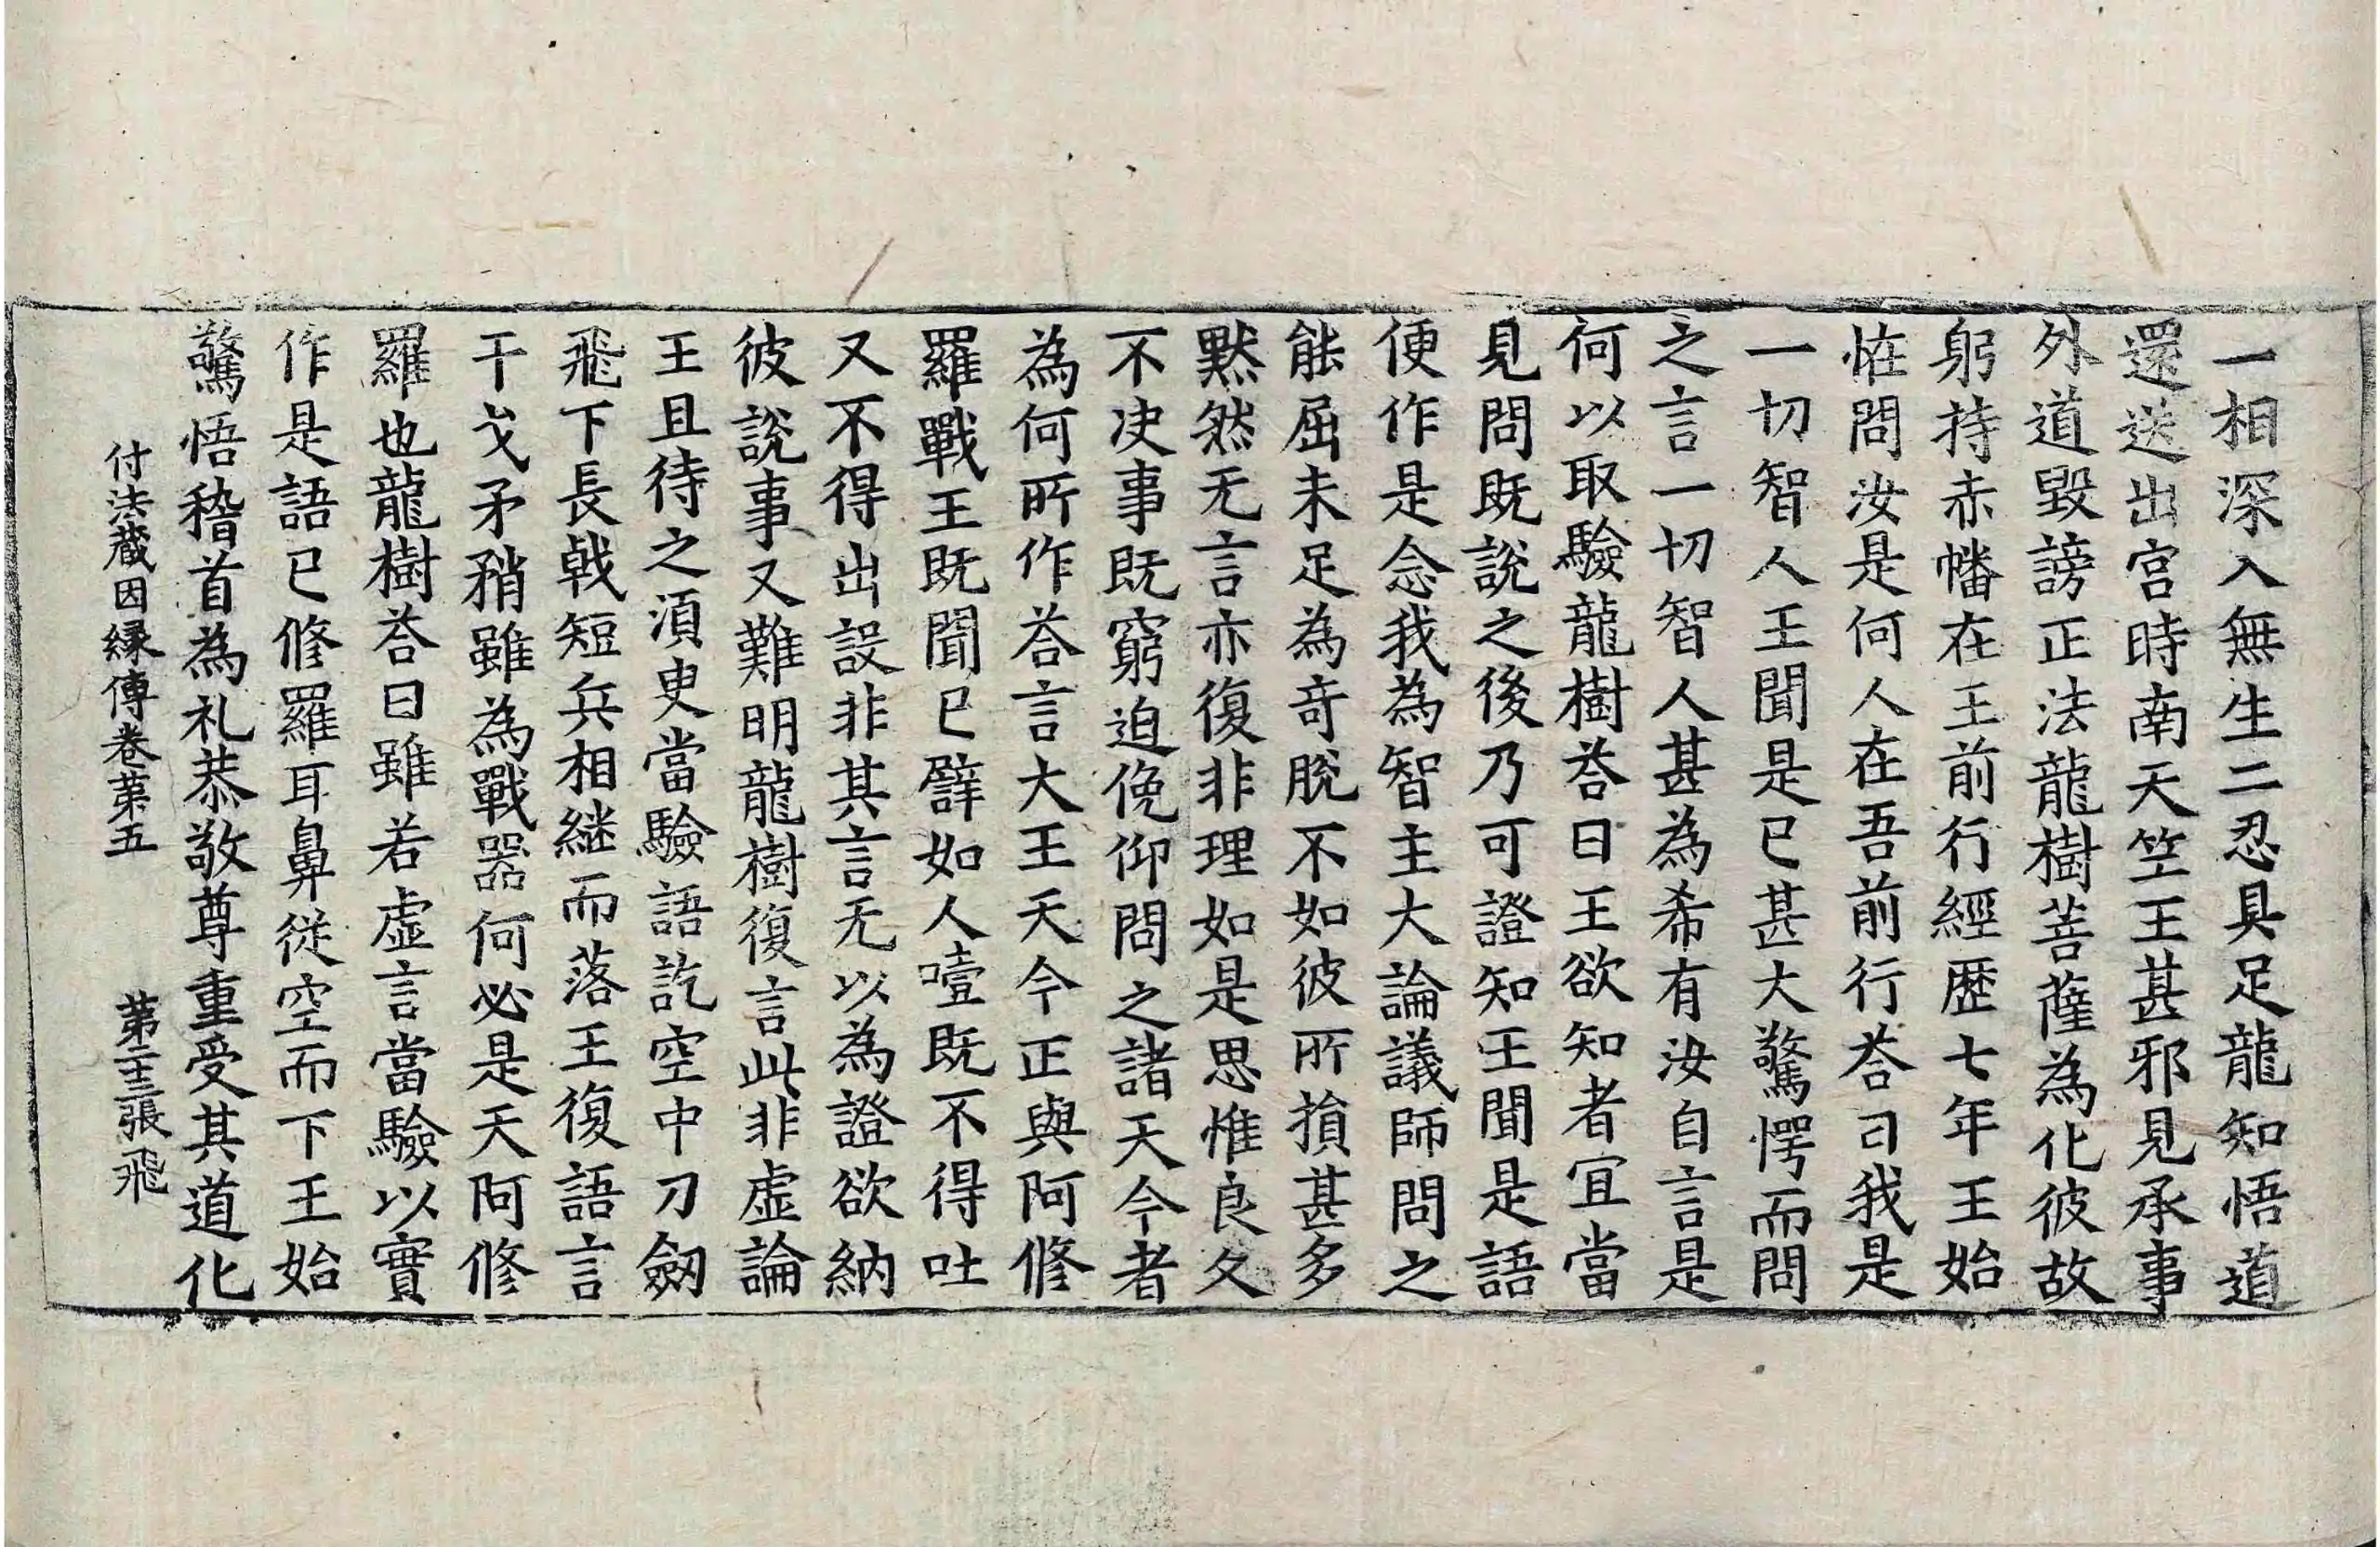 一相深入無生二忍具足龍知悟道
還送出宮時南天竺王甚邪見承事
外道毀謗正法龍樹菩薩為化彼故
躬持赤幡在王前行經歷七年王始
恠問汝是何人在吾前行荅曰我是
一切智人王聞是已甚大驚愕而問
之言一切智人甚為希有汝自言是
何以取驗龍樹荅曰王欲知者宜當
見問既說之後乃可證知王聞是語
便作是念我為智主大論議師問之
能屈未足為奇脫不如彼所損甚多
默然无言亦復非理如是思惟良久
不決事既窮迫俛仰問之諸天今者
為何所作荅言大王天今正與阿修
羅戰王既聞已譬如人噎既不得吐
又不得出設非其言无以為證欲納
彼說事又難明龍樹復言此非虛論
王且待之須臾當驗語訖空中刀劒
飛下長戟短兵相継而落王復語言
干戈矛矟雖為戰器何必是天阿修
羅也龍樹荅曰雖若虛言當驗以實
作是語已修羅耳鼻從空而下王始
驚悟稽首為礼恭敬尊重受其道化
付法藏因縁傳卷苐五　苐二十三張　飛